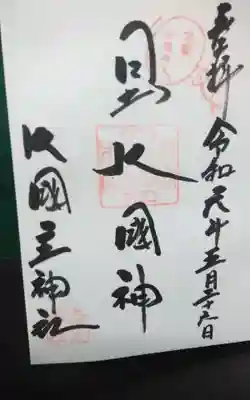 奉拝 令和元年五月二十六日
日出大國神
大國主神社